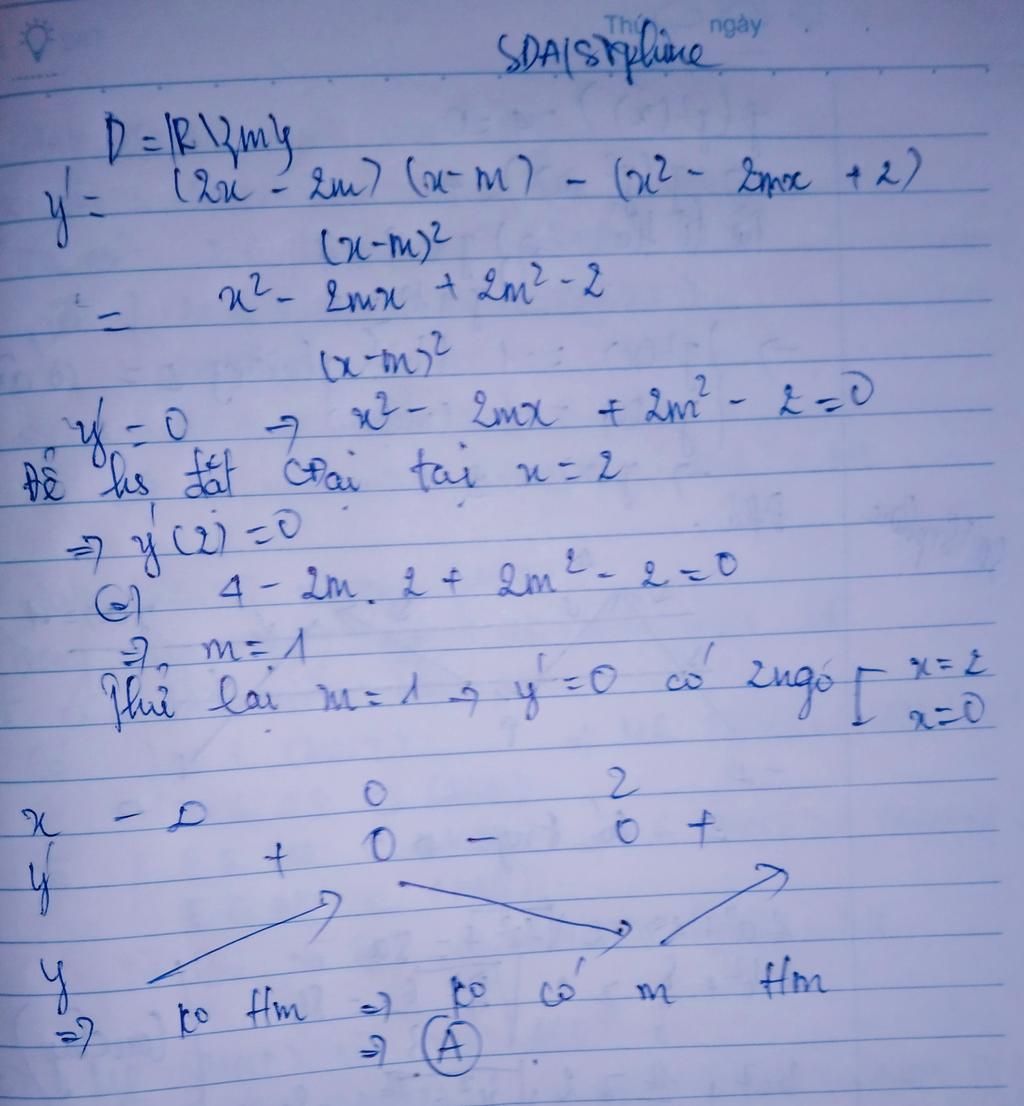 Thứ ngày
D = R\{m}
y' = (2x - 2m)(x - m) - (x² - 2mx + 2)
(x-m)²
= x² - 2mx + 2m² - 2
(x-m)²
y' = 0 → x² - 2mx + 2m² - 2 = 0
Để hs đạt cđại tại x = 2
⇒ y'(2) = 0
(=) 4 - 2m. 2 + 2m² - 2 = 0
⇒ m = 1
Thử lại m = 1 → y' = 0 có 2 ngo [ x = 2
x = 0
x - ∞ 0 2
y' + 0 - 0 +
y
⇒ ko tm ⇒ ko có m tm
⇒ A